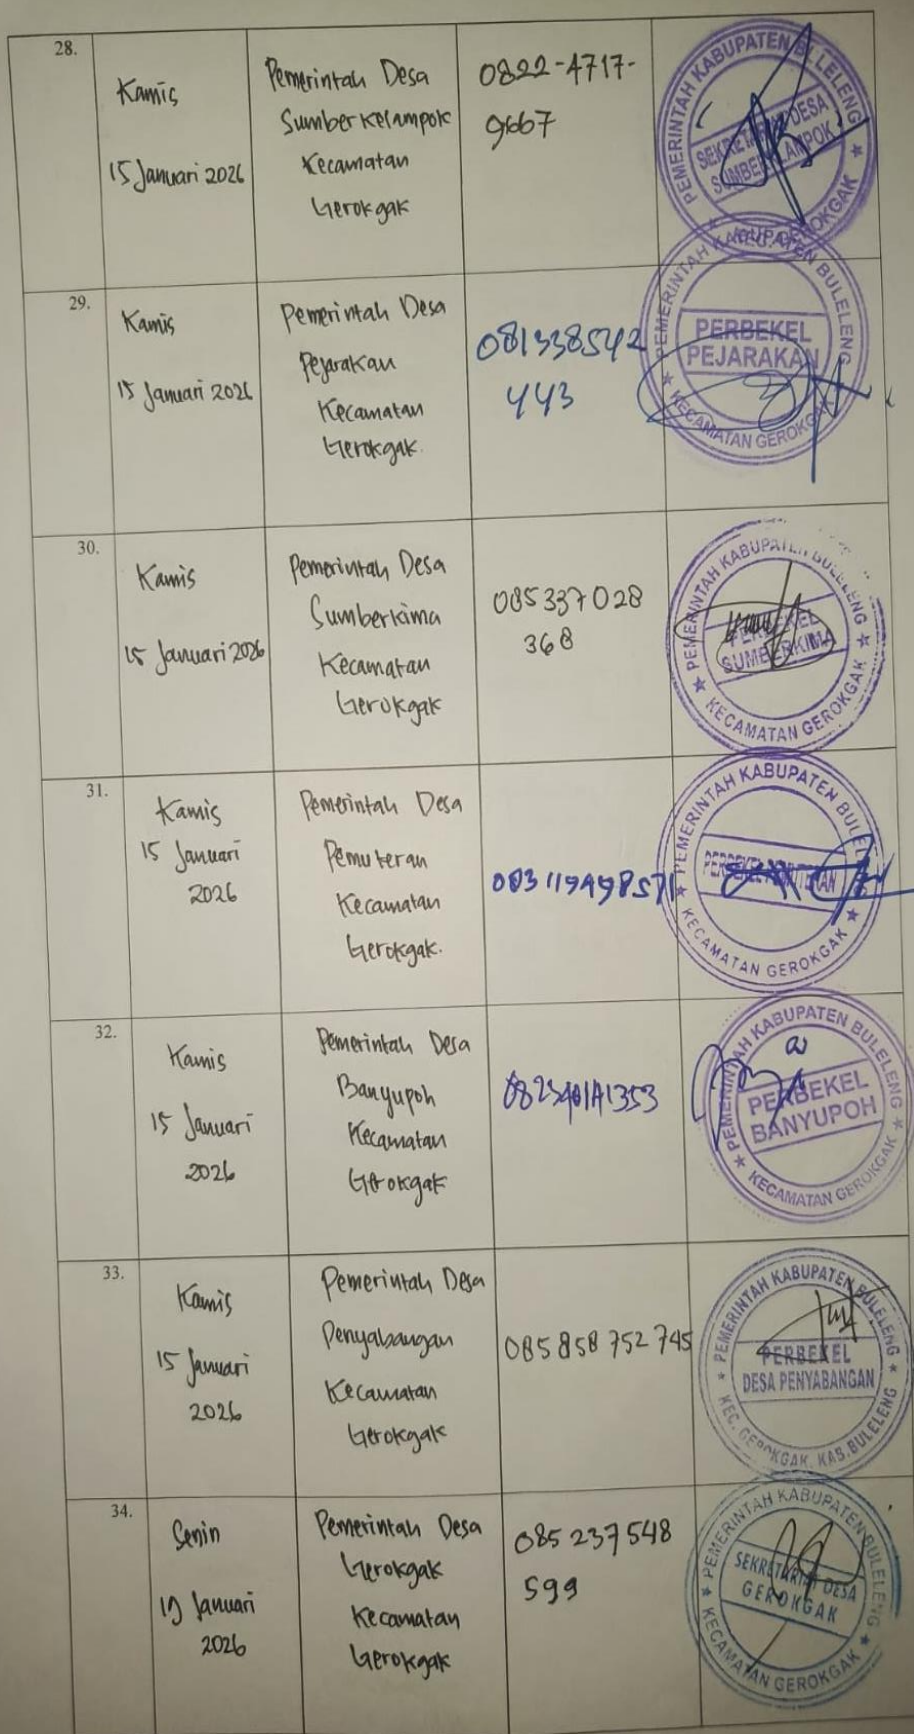 28.
Kamis
15 Januari 2026
Pemerintah Desa
Sumberkelampok
Kecamatan
Gerokgak
0822-4717-
9667
PEMERINTAH KABUPATEN BULELENG
SEKRETARIAT DESA
SUMBERKLAMPOK
KECAMATAN GEROKGAK
29.
Kamis
15 Januari 2026
Pemerintah Desa
Pejarakan
Kecamatan
Gerokgak.
081338542
443
PEMERINTAH KABUPATEN BULELENG
PERBEKEL
PEJARAKAN
KECAMATAN GEROKGAK
30.
Kamis
15 Januari 2026
Pemerintah Desa
Sumberkima
Kecamatan
Gerokgak
085337028
368
PEMERINTAH KABUPATEN BULELENG
PERBEKEL
SUMBERKIMA
KECAMATAN GEROKGAK
31.
Kamis
15 Januari
2026
Pemerintah Desa
Pemuteran
Kecamatan
Gerokgak.
PEMERINTAH KABUPATEN BULELENG
PERBEKEL PEMUTERAN
KECAMATAN GEROKGAK
32.
Kamis
15 Januari
2026
Pemerintah Desa
Banyupoh
Kecamatan
Gerokgak
PEMERINTAH KABUPATEN BULELENG
PERBEKEL
BANYUPOH
KECAMATAN GEROKGAK
33.
Kamis
15 Januari
2026
Pemerintah Desa
Penyabangan
Kecamatan
Gerokgak
085 858 752 745
PEMERINTAH KABUPATEN BULELENG
PERBEKEL
DESA PENYABANGAN
KEC. GEROKGAK, KAB.BULELENG
34.
Senin
19 Januari
2026
Pemerintah Desa
Gerokgak
Kecamatan
Gerokgak
085 237 548
599
PEMERINTAH KABUPATEN BULELENG
SEKRETARIAT DESA
GEROKGAK
KECAMATAN GEROKGAK